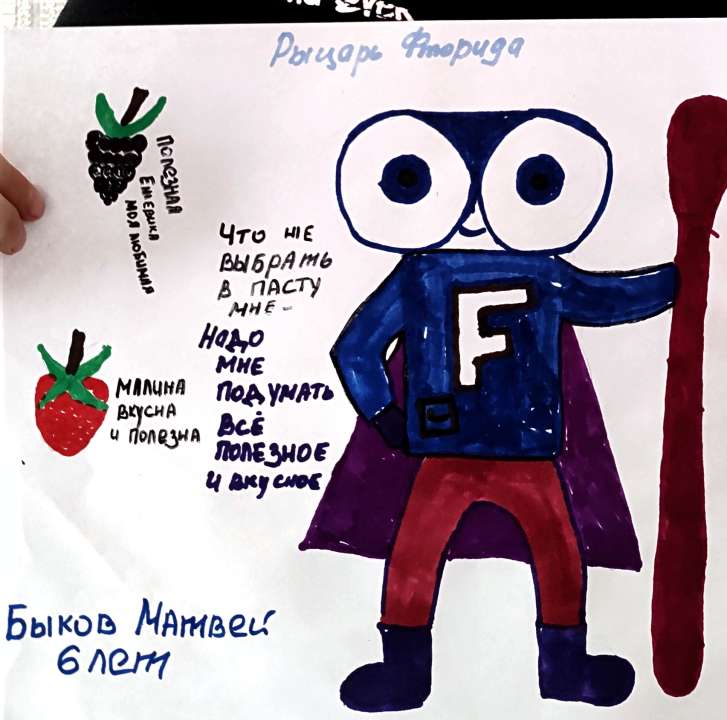 Рыцарь Фторида
Полезная
Ежевика
моя любимая
Что же
выбрать
в пасту
мне-
Надо
мне
подумать
всё
полезное
и вкусное
F
малина
вкусна
и полезна
Быков Матвей
6 лет